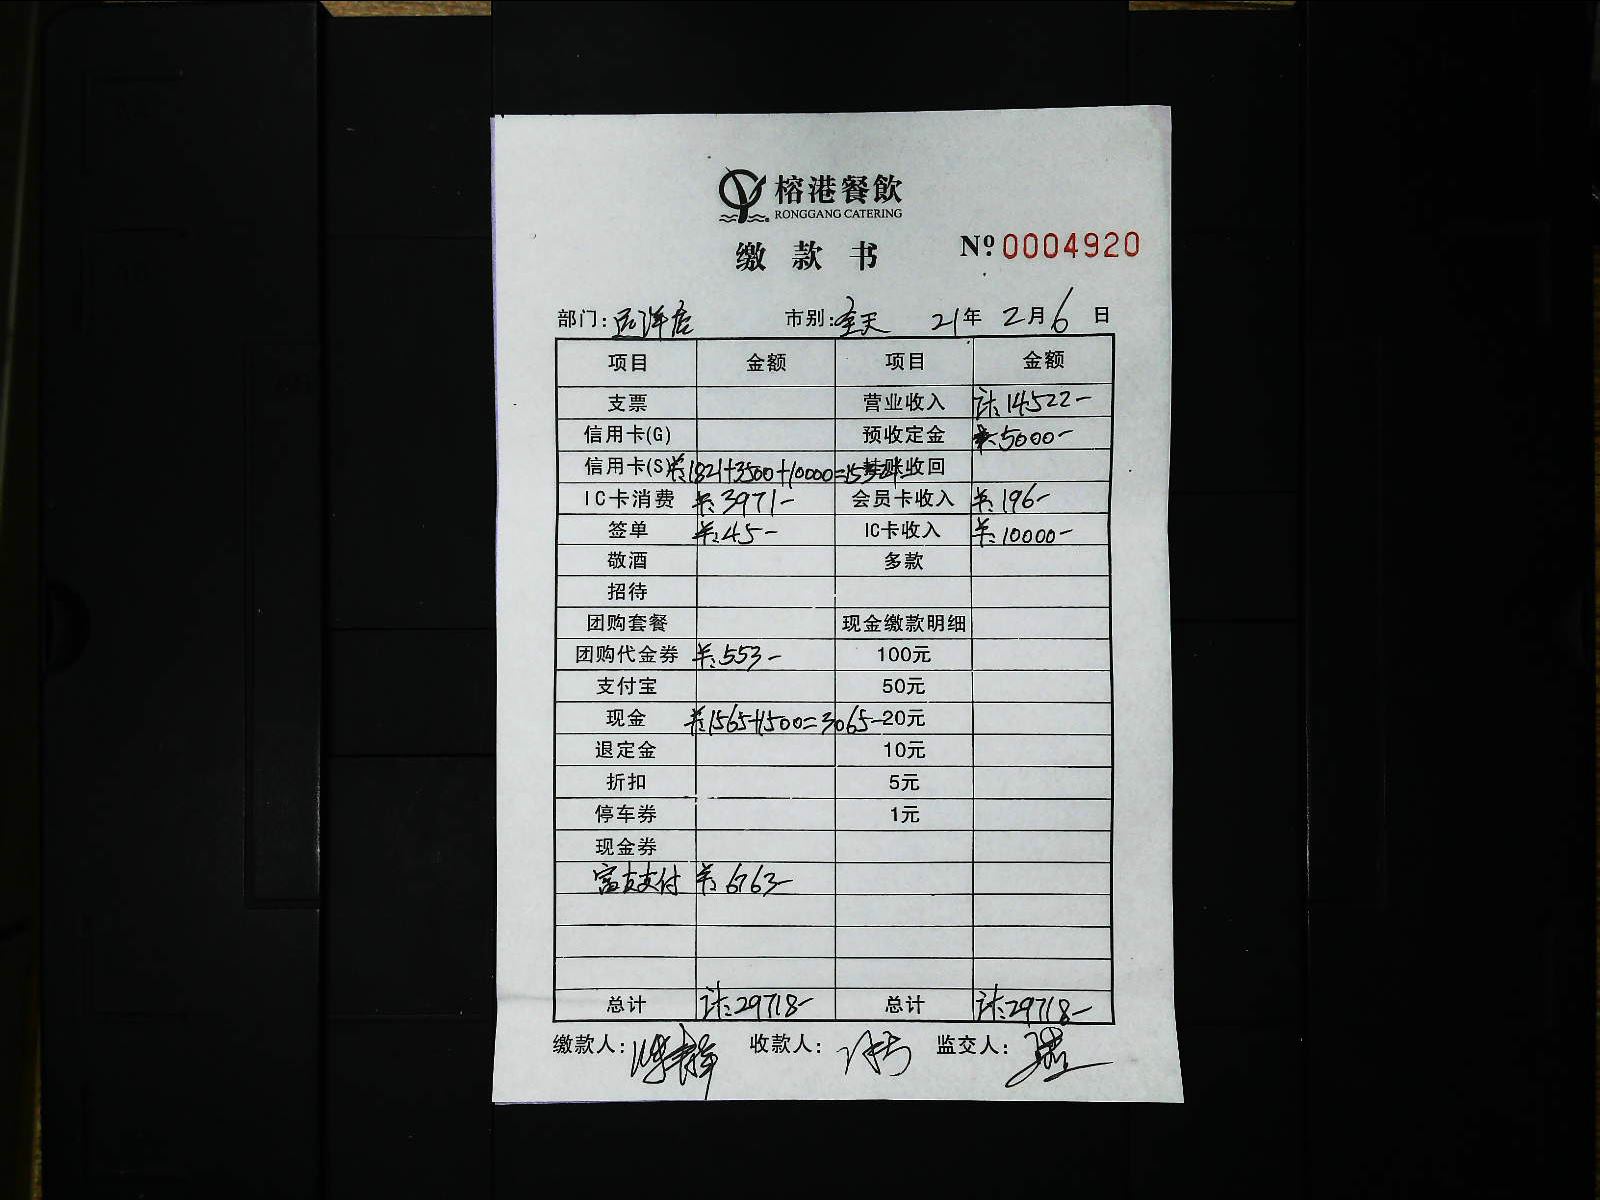 榕港餐飲
RONGGANG CATERING
缴款书 Nº 0004920
部门: 远洋店 市别: 全天 21年 2月 6日
项目 金额 项目 金额
支票 营业收入 计: 14522-
信用卡(G) 预收定金 羊: 5000-
信用卡(S) 羊: 1821+3500+10000=15321- 挂账收回
IC卡消费 羊: 3971- 会员卡收入 羊: 196-
签单 羊: 45- IC卡收入 羊: 10000-
敬酒 多款
招待
团购套餐 现金缴款明细
团购代金券 羊: 553- 100元
支付宝 50元
现金 羊: 1565+1500=3065- 20元
退定金 10元
折扣 5元
停车券 1元
现金券
富友支付 羊: 6763-
总计 计: 29718- 总计 计: 29718-
缴款人: 收款人: 监交人: